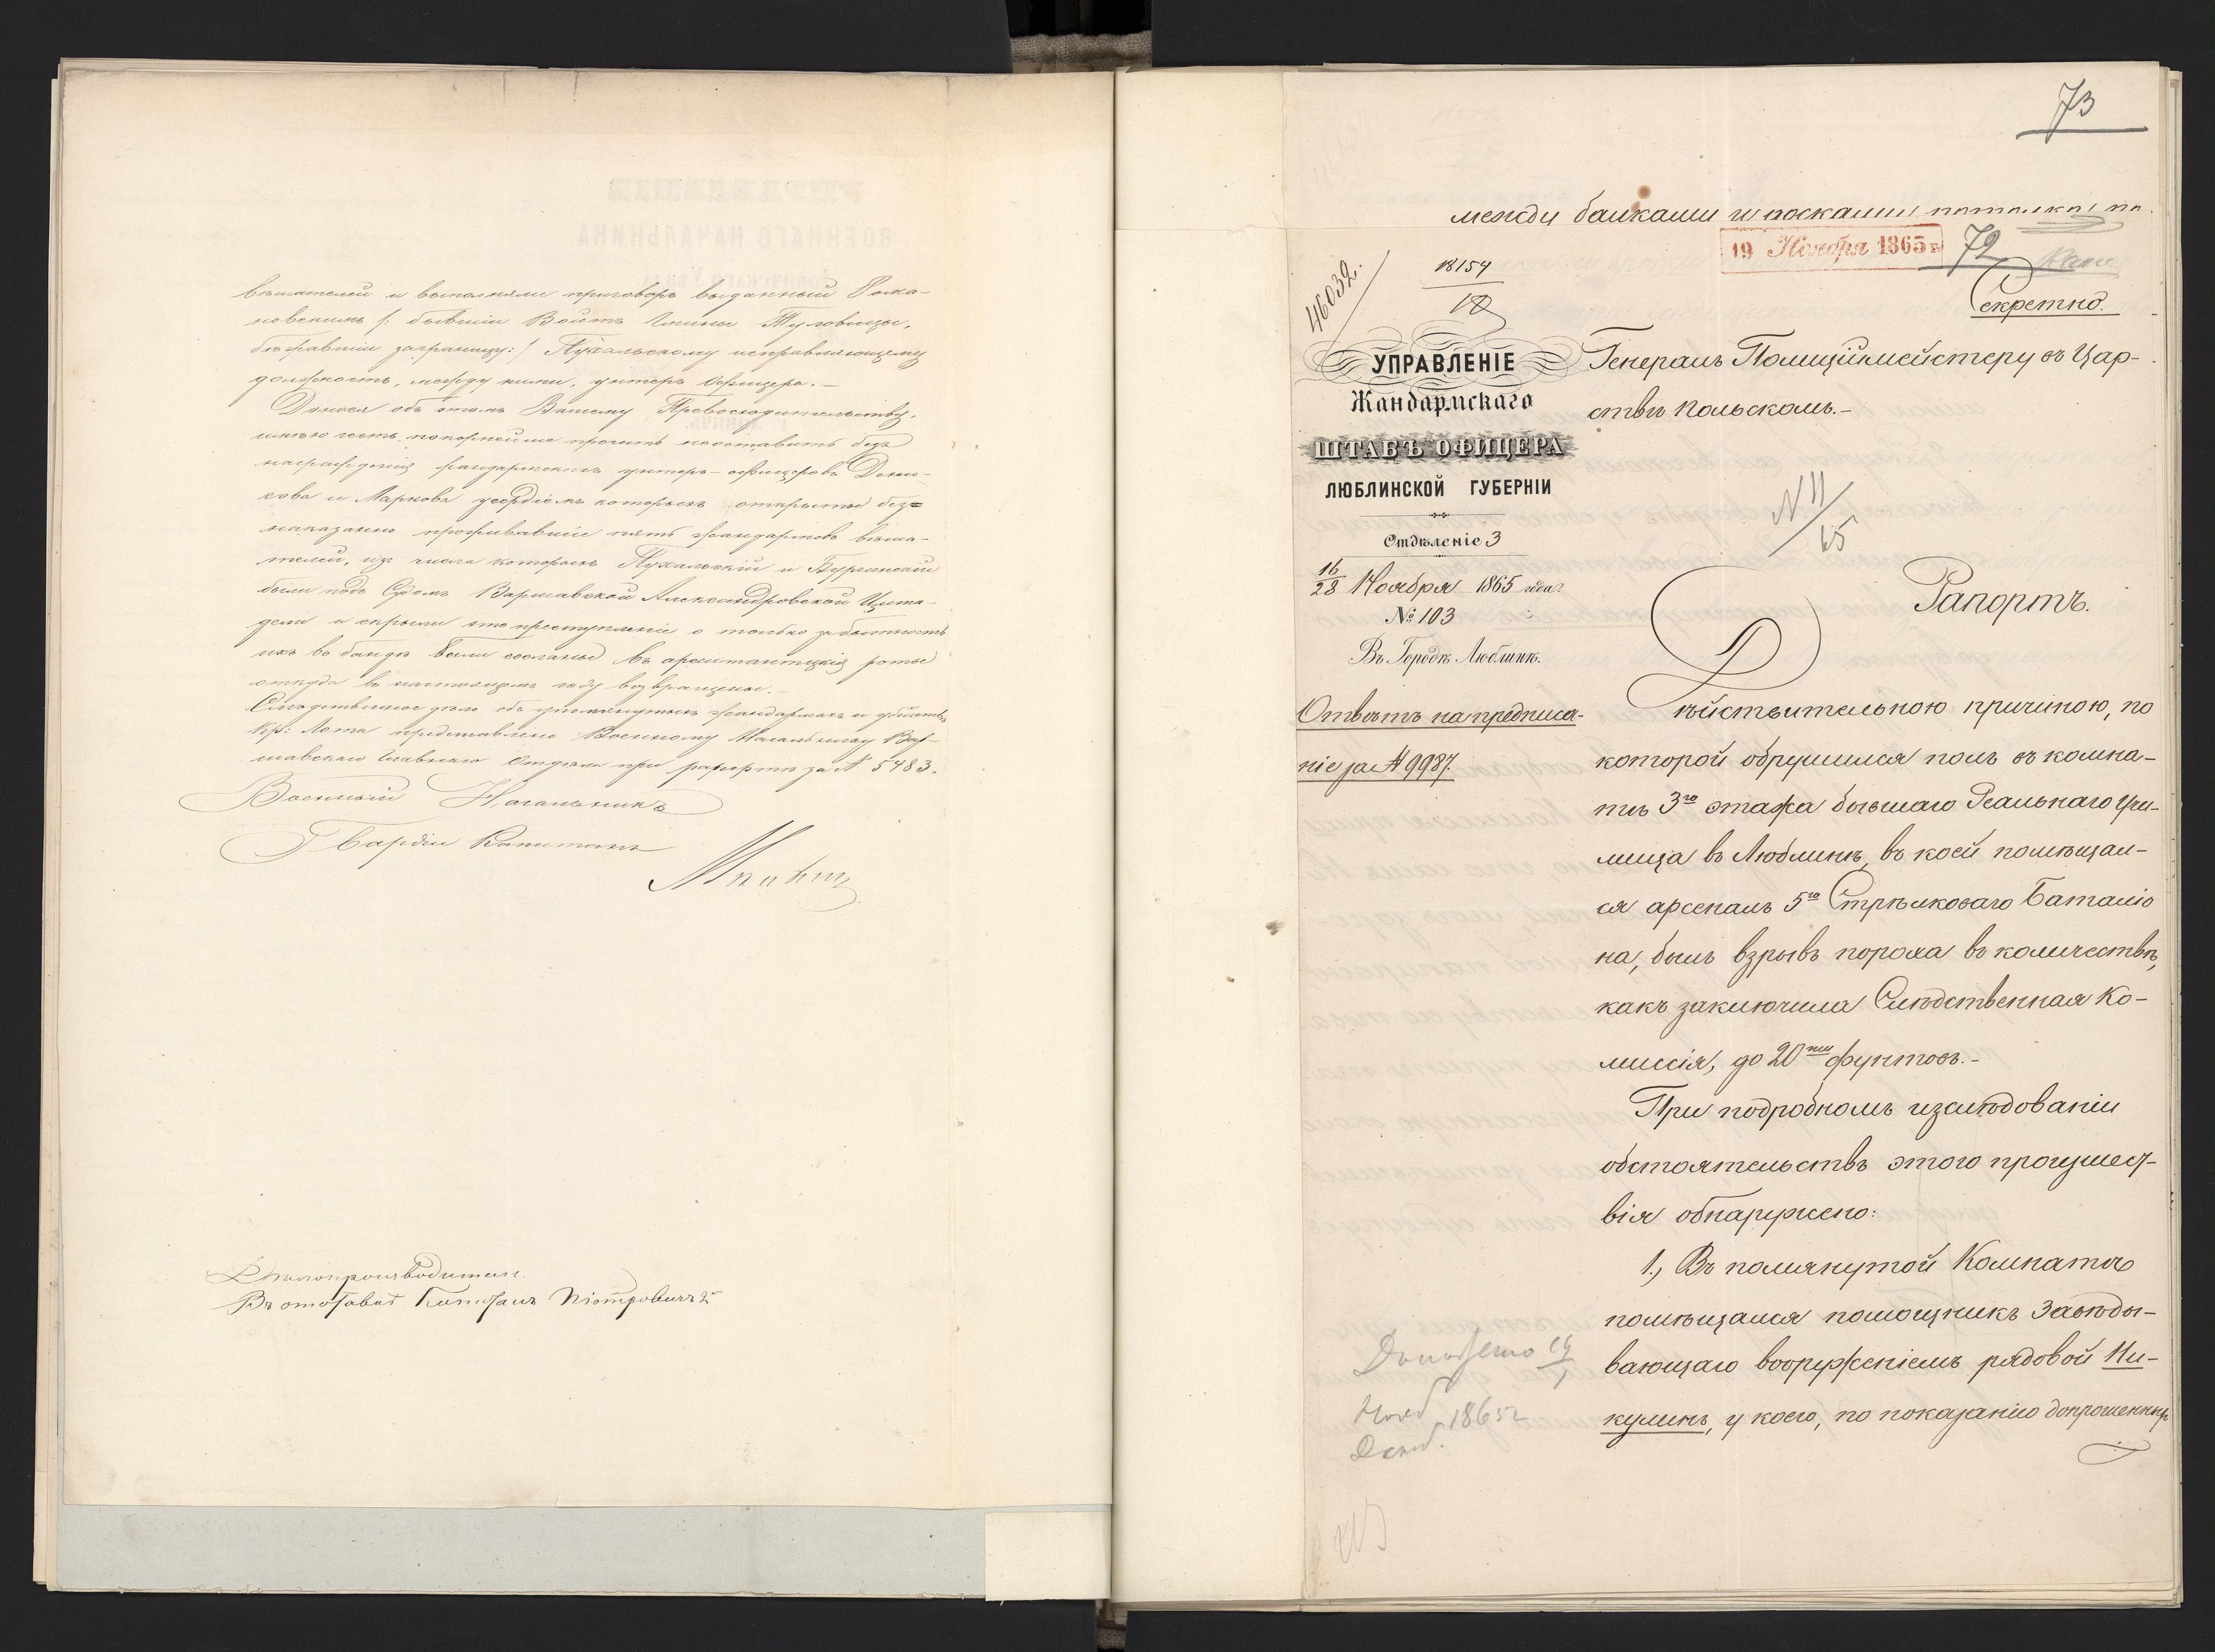 вѣшателей и выполняли приговоръ выданный Рома-
новскимъ /: бывшій Войтъ Гмины Туловицы,
бѣжавшій заграницу:/ Пухальскому исправляющему
должность, между ними, унтеръ Офицера.—
Донося объ этомъ Вашему Превосходительству,
имѣю честь покорнейше просить неоставить безъ
награжденія жандармскихъ унтеръ-офицеровъ Деми-
кова и Маркова усердіемъ которыхъ открыты без=
наказанно проживавшіе пять жандармовъ вѣша-
телей, изъ числа которыхъ Пухальскій и
были подъ Судомъ Варшавской Александровской Цита-
дели и скрыли это преступленіе а только за бытность
ихъ въ бандѣ были сосланы въ арестантскія роты
откуда въ настоящемъ году возвращены.—
Слѣдственное дѣло объ упомянутыхъ жандармахъ и убійствѣ
Кр: Лота представлено Военному Начальнику Вар-
шавскаго Главнаго Отдѣла при рапортѣ за № 5483.
Военный Начальникъ
Гвардіи Капитанъ
Дѣлопроизводитель
Въ отставкѣ Капитанъ Піотровичъ
73
между балками и досками потолка, по
19 Ноября 1865 г.
72
46032.
18154
Секретно.
УПРАВЛЕНІЕ
Жандармскаго
ШТАБЪ ОФИЦЕРА
ЛЮБЛИНСКОЙ ГУБЕРНІИ
Отдѣленіе 3
16/28 Ноября 1865 года.
№ 103
Въ Городѣ Люблинѣ.
Отвѣтъ на предписа-
ніе за № 9987.
Генералъ Полиціймейстеру въ Цар-
ствѣ Польскомъ.—
N 11/65
Рапортъ.
Дѣйствительною причиною, по
которой обрушился полъ въ комна-
тѣ 3го этажа бывшаго Реальнаго Учи-
лища въ Люблинѣ, въ коей помѣщал-
ся арсеналъ 5го Стрѣлковаго Баталіо
на, былъ взрывъ пороха въ количествѣ,
какъ заключила Слѣдственная Ко-
миссія, до 20ти фунтовъ.—
При подробномъ изслѣдованіи
обстоятельствъ этого происшест-
вія обнаружено:
1., Въ помянутой Комнатѣ
помѣщался помощникъ Завѣды-
вающаго вооруженіемъ рядовой Ни-
кулинъ, у коего, по показанію допрошенныхъ
Доложено
Нояб. 1865 г.
Декаб.